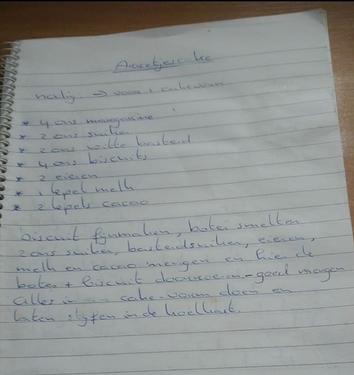 nodig → voor 1 cakevorm
* 4 ons margarine
* 2 ons suiker
* 2 ons witte basterd
* 4 ons biscuits
* 2 eieren
* 1 lepel melk
* 2 lepels cacao
biscuit fijnmalen, boter smelten
2 ons suiker, basterdsuiker, eieren,
melk en cacao mengen en hier de
boter + biscuit doorroeren - goed mengen
alles in cake-vorm doen en
laten stijven in de koelkast.